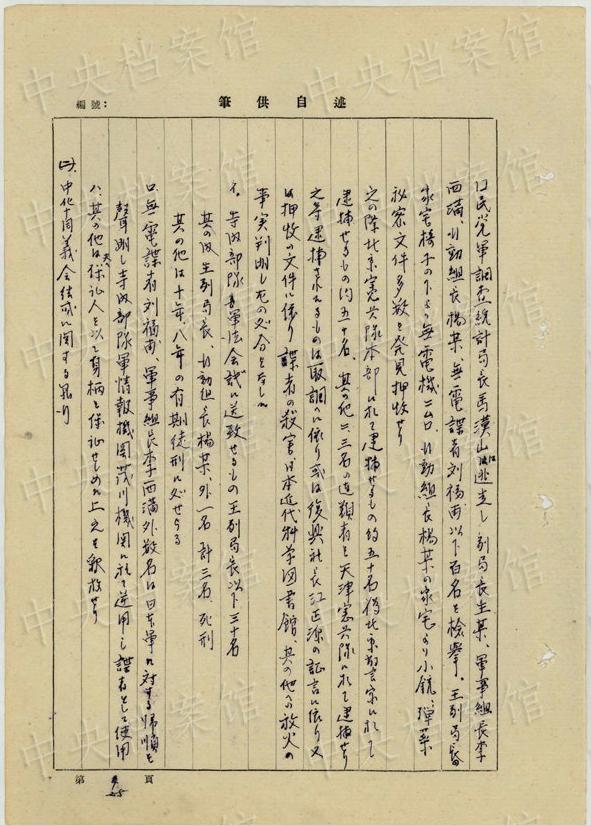 編號：
筆供自述
国民党軍調查統計局長馬漢山ハ逃走し副局長王某、軍事組長李
西満、行動組長楊某、無電諜者刘楊甫以下百名を検挙。王副局長
家宅椅子の下より無電機二ケ口、行動組長楊某の家宅より小銃、弾薬
秘密文件多数を発見押收せり
之の際北京憲兵隊本部に於て逮捕せるもの約五十名後北京警察に於て
逮捕せるもの約五十名、其の他二、三名の連類者を天津憲兵隊に於て逮捕せり
之等逮捕されたるものは取調べに依り或は復興社長江正源の証言に依り又
は押收の文件に依り諜者の殺害、日本近代科学図書館、其の他への放火の
事実判明し左の処分をなしぬ
イ、寺内部隊軍法会議に送致せるもの王副局長以下三十名
其の内王副局長、行動組長楊某、外一名計三名、死刑
其の他は十年、八年の有期徒刑に処せらる
ロ、無電諜者刘楊甫、軍事組長李西満外数名は日本軍に対する帰順を
聲明し寺内部隊軍情報機関茂川機関に於て逆用し諜者として使用
ハ、其の他は保証人を以て身柄を保証せしめた上之を釈放せり
(二)、中化中同義会結成に関する罪行
第
頁
中央档案馆